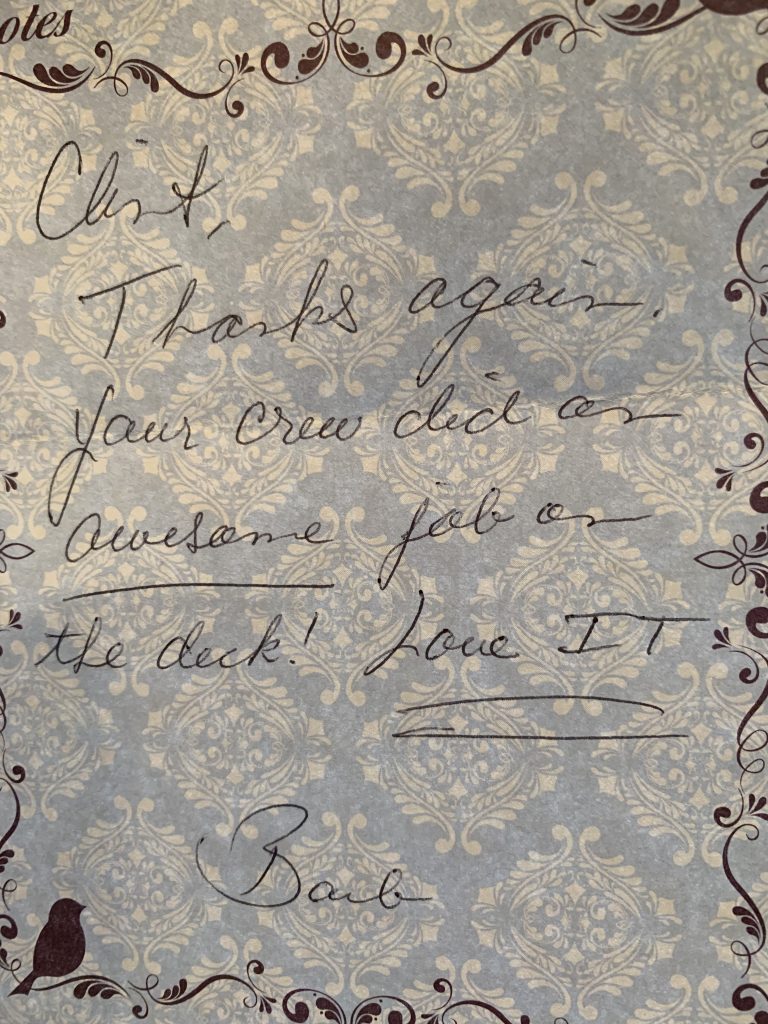 otes
Clint,
Thanks again.
your crew did an
awesome job on
the deck! Love IT
Barb